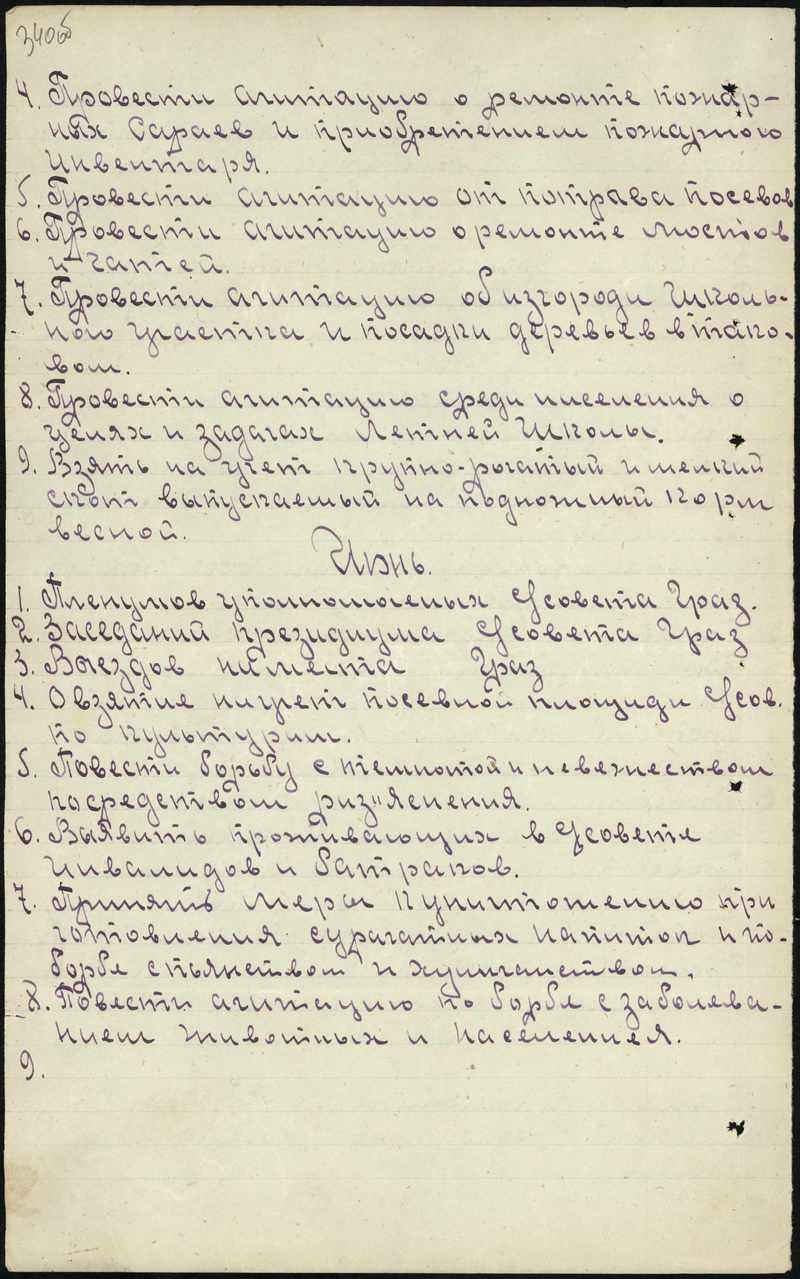 340об
4. Провести агитацию о ремонте пожар-
ных Сараев и приобретением пожарного
инвентаря.
5. Провести агитацию от потрава посевов
6. Провести агитацию о ремонте мостов
и гатей.
7. Провести агитацию об изгороди Школь-
ного участка и посадки деревьев в тако-
вом.
8. Провести агитацию среди населения о
целях и задачах Летней Школы.
9. Взять на учет крупно-рогатый и мелкий
скот выпускаемый на подножный корм
весной.
Июнь.
1. Пленумов уполномоченых Усовета Граз.
2. Заседаний президиума Усовета Граз
3. Выездов на места Граз
4. О взятие на учет посевной площади Усов.
по культурам.
5. Повести борьбу с темнотой и невежеством
посредством раз"яснения.
6. Выявить проживающих в Усовете
Инвалидов и батраков.
7. Принять меры к уништожению при
готовления сурагатных напиток и по-
борбе с пьянством и хулиганством.
8. Повести агитацию по борбе с заболева-
нием животных и населениея.
9.